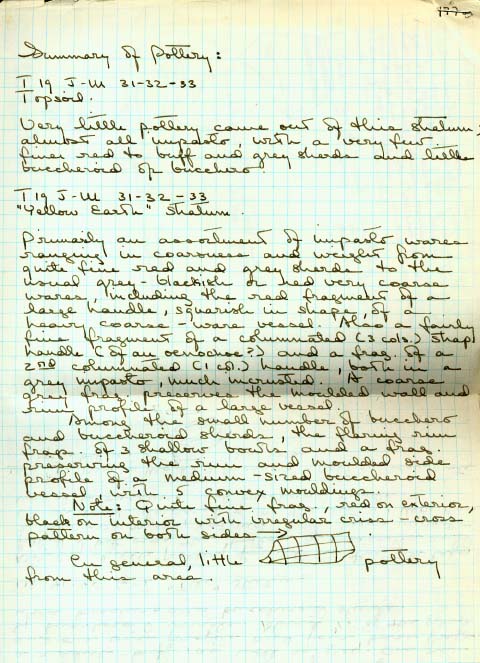 Summary of Pottery:
T 19 J-M 31-32-33
Topsoil.
Very little pottery came out of this stratum;
almost all impasto, with a very few
finer red to buff and grey sherds and little
buccheroid or bucchero.
T 19 J-M 31-32-33
"Yellow Earth" Stratum.
Primarily an assortment of impasto wares
ranging in coarseness and weight from
quite fine red and grey sherds to the
usual grey-blackish or red very coarse
wares, including the red fragment of a
large handle, squarish in shape, of a
heavy coarse-ware vessel. Also a fairly
fine fragment of a columnated (3 cols.) strap
handle (of an oenochoe?) and a frag. of a
2nd columnated (1 col.) handle, both in a
grey impasto, much incrusted. A coarse
grey frag. preserves the moulded wall and
rim profile of a large vessel.
Among the small number of bucchero
and buccheroid sherds, the flaring rim
frags. of 3 shallow bowls and a frag.
preserving the rim and moulded side
profile of a medium-sized buccheroid
vessel with 5 convex mouldings.
Note: Quite fine frag., red on exterior,
black on interior with irregular criss-cross
pattern on both sides →
In general, little pottery
from this area.